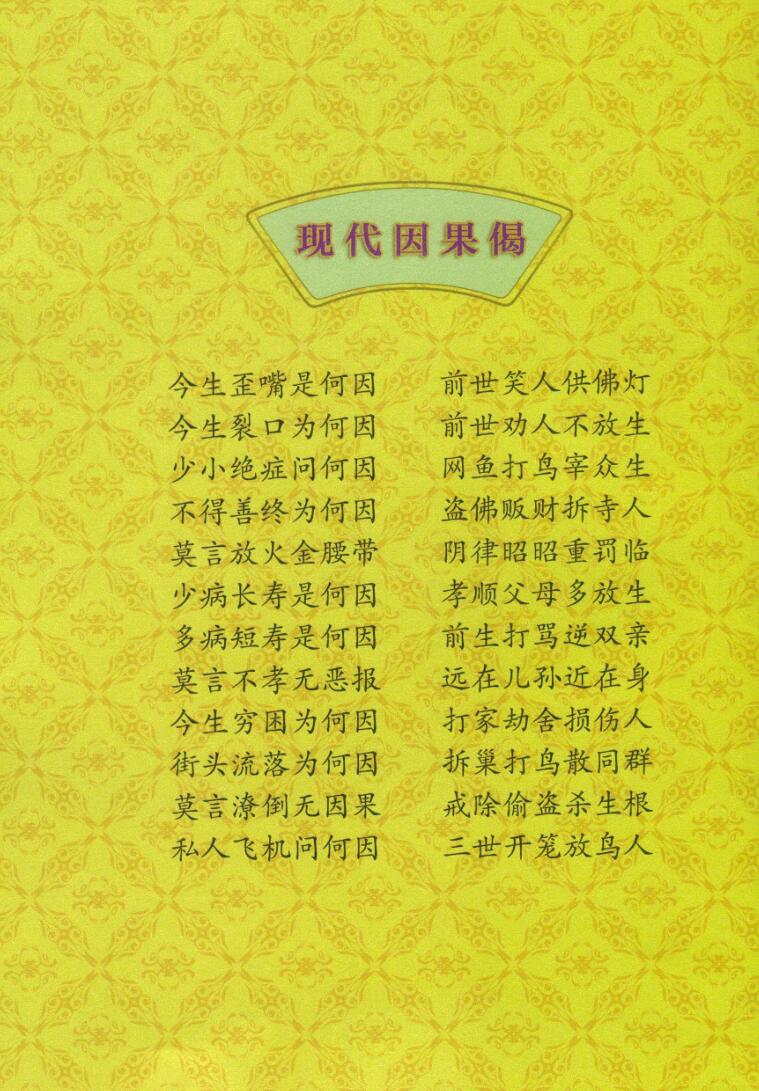 现代因果偈
今生歪嘴是何因 前世笑人供佛灯
今生裂口为何因 前世劝人不放生
少小绝症问何因 网鱼打鸟宰众生
不得善终为何因 盗佛贩财拆寺人
莫言放火金腰带 阴律昭昭重罚临
少病长寿是何因 孝顺父母多放生
多病短寿是何因 前生打骂逆双亲
莫言不孝无恶报 远在儿孙近在身
今生穷困为何因 打家劫舍损伤人
街头流落为何因 拆巢打鸟散同群
莫言潦倒无因果 戒除偷盗杀生根
私人飞机问何因 三世开笼放鸟人